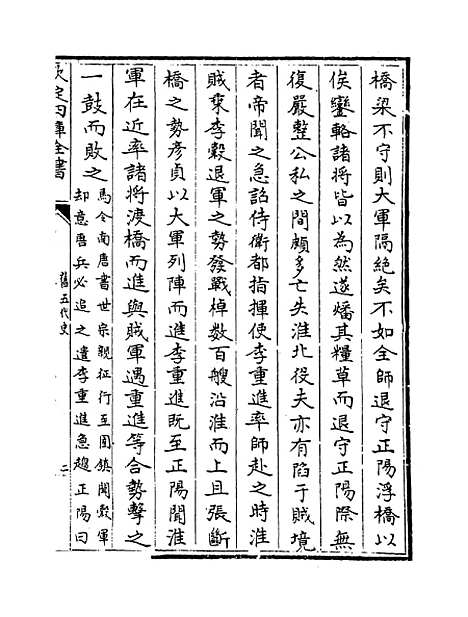 橋梁不守則大軍隔絶矣不如全師退守正陽浮橋以
俟鑾輅諸將皆以為然遂燔其糧草而退守正陽際無
復嚴整公私之間頗多亡失淮北役夫亦有陷于賊境
者帝聞之急詔侍衛都指揮使李重進率師赴之時淮
賊乘李穀退軍之勢發戰棹數百艘沿淮而上且張斷
橋之勢彦貞以大軍列陣而進李重進既至正陽聞淮
軍在近率諸將渡橋而進與賊軍遇重進等合勢擊之
一鼓而敗之馬令南唐書世宗親征行至圉鎮聞穀軍
却意唐兵必追之遣李重進急趨正陽曰
欽定四庫全書
舊五代史
二